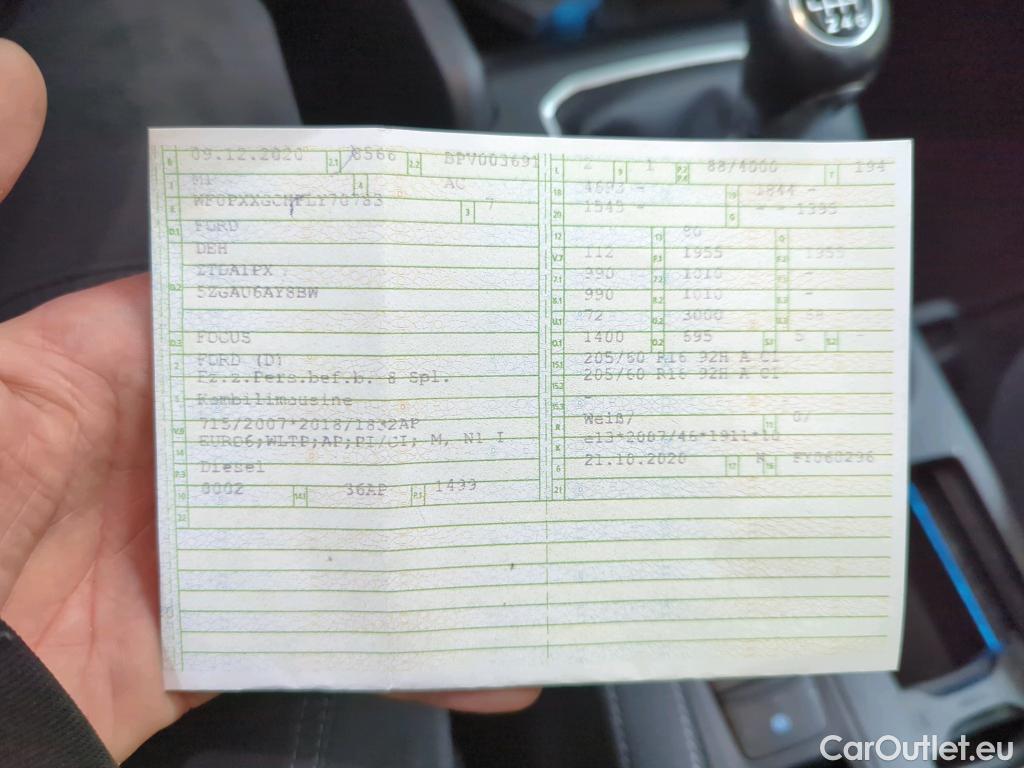 2 4 6
B 09.12.2020 2.1 8566 2.2 BPV003691
J M1 4 AC
E 3 7
D.1 FORD
DEH
D.2
5ZGAU6AY8BW
D.3 FOCUS
2 FORD (D)
Fz.z.Pers.bef.b. 8 Spl.
5 Kombilimousine
V.9 715/2007*2018/1832AP
14 EURO6;WLTP;AP;PI/CI; M, N1 I
P.3 Diesel
10 0002 14.1 36AP P.1 1499
22
L 2 9 1 P.2 P.4 88/4000 T 194
18 4693 - 19 1844 -
20 G - - 1395
12 13 80 Q
V.7 112 F.1 1955 F.2 1955
7.1 990 7.2 1010 7.3 -
8.1 990 8.2 1010 8.3 -
U.1 72 U.2 3000 U.3 68
O.1 1400 O.2 695 S.1 5 S.2 -
15.1 205/60 R16 92H A CI
15.2 205/60 R16 92H A CI
15.3 -
R Weiß/ 11 0/
K e13*2007/46*1911*10
6 21.10.2020 17 K 16 FY060296
21
CarOutlet.eu